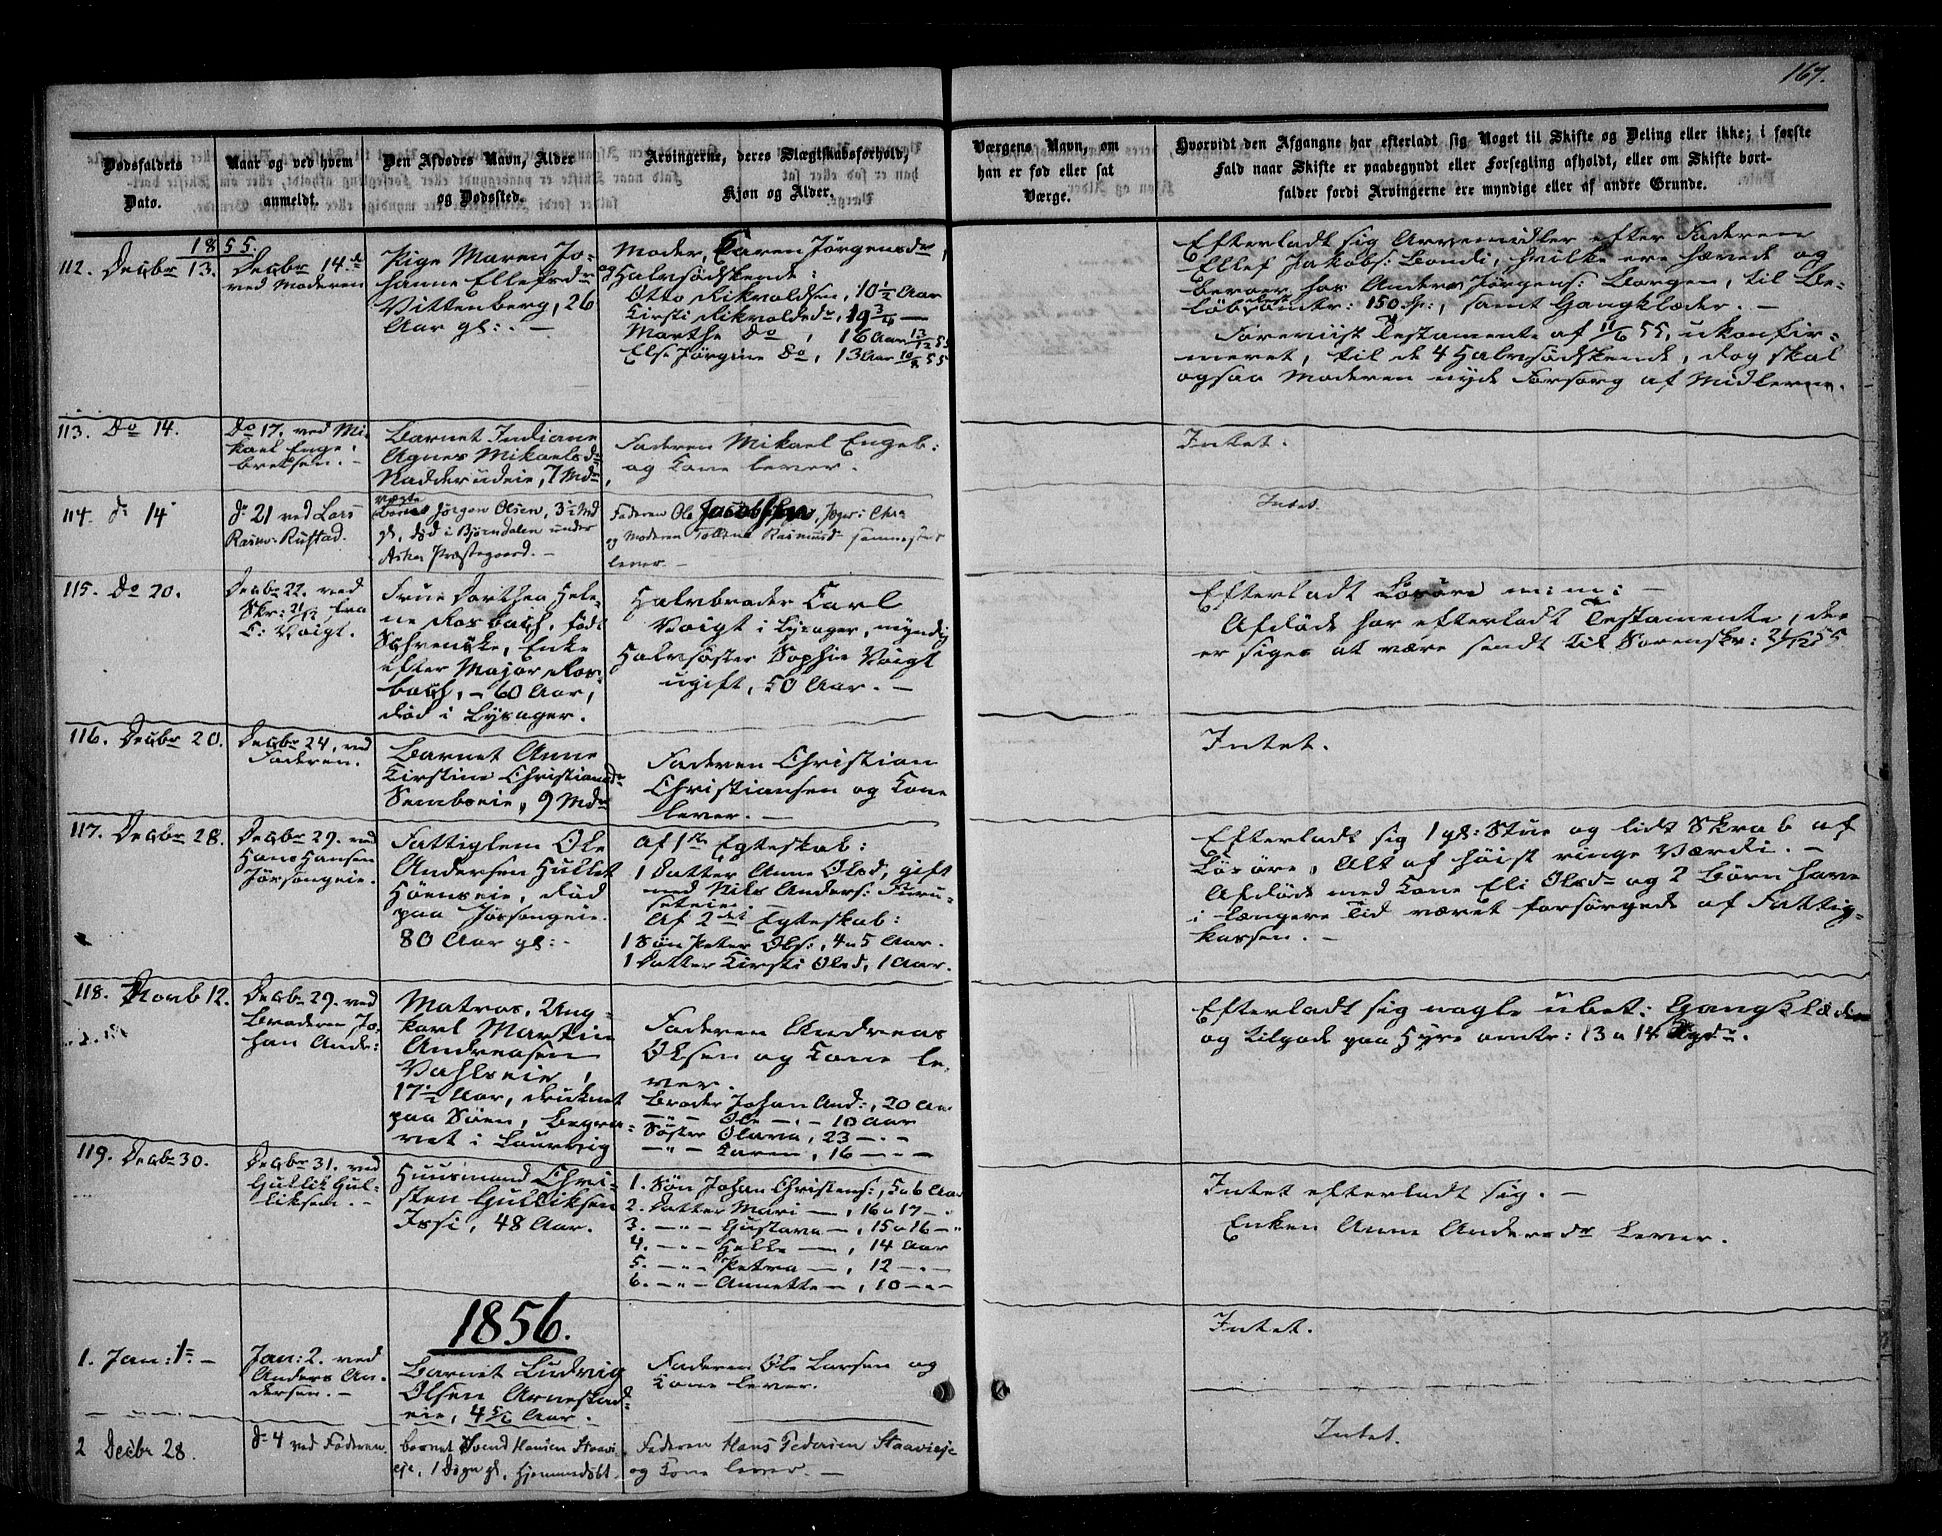 167.
Dødsfaldets
Dato.
Naar og ved hvem
anmeldt.
Den Afdødes Navn, Alder
og Dødssted.
Arvingerne, deres Slægtskabsforhold,
Kjøn og Alder.
Værgens Navn, om
han er fød eller sat
Værge.
Hvorvidt den Afgangne har efterladt sig Noget til Skifte og Deling eller ikke; i første
Fald naar Skifte er paabegyndt eller Forsegling afholdt, eller om Skifte bort-
falder fordi Arvingerne ere myndige eller af andre Grunde.
1855.
112. Decbr 13.
Decbr 14de
ved Moderen
Pige Maren Jo-
hanne Ellefsdr
Vittenberg, 26
Aar gl: . -
Moder, Karen Jørgensdr,
og Halvsødskende:
Otto Rikvoldsen, 10½ Aar
Kirsti Rikvoldsdr, 19 3/4 —
Marthe Do, 16 Aar 13/12 55
Else Jørgine Do, 13 Aar 10/8 55
Efterladt sig Arvemidler efter Faderen
Ellef Jakobs: Bondi, hvilke ere hævede og
beroer hos Anders Jørgens: Borgen, til Be-
løb omtr: 150 Sp:, samt Gangklæder. -
Foreviist Testamente af 11/6 55, ukonfir-
meret, til de 4 Halvsødskende, dog skal
ogsaa Moderen nyde Forsorg af Midlerne.
113. Do 14.
Do 17. ved Mi-
kael Enge-
bretsen. -
Barnet Indiane
Agnes Mikaelsdr
Nadderudeie, 7 Mdr,
Faderen Mikael Engeb:
og Kone lever.
Intet.
114. do 14
do 21 ved Lars
Rasm. Rustad.
uægte
Barn Jørgen Olsen, 3½ Md
gl, død i Bjørndalen under
Asker Præstegaard. -
Faderen Ole Jacobssen, Jæger i Chra
og Moderen Rasmusd sammesteds
lever. -
Intet.
115. Do 20.
Decbr 22. ved
Skr: 21/12, fra
C: Voigt.
Frue Dorthea Hele-
ne Rosbach, født
Schrencke, Enke
efter Major Ros-
bach, - 60 Aar,
død i Lysager.
Halvbroder Carl
Voigt i Lysager, myndig
Halvsøster Sophie Voigt
ugift, 50 Aar. -
Efterladt Løsøre m: m: -
Afdøde har efterladt Testamente, der
er siges at være sendt til Sorenskr: 21/12 55
116. Decbr 20.
Decbr 24. ved
Faderen.
Barnet Anne
Kirstine Christiansdr
Sembseie, 9 Mdr
Faderen Christian
Christiansen og Kone
lever. -
Intet.
117. Decbr 28.
Decbr 29. ved
Hans Hansen
Jøssongeie.
Fattiglem Ole
Andersen Hullet
Hønseie, død
paa Jøssongeie.
80 Aar gl: -
Af 1ste Egteskab:
1 Datter Anne Olsd, gift
med Nils Anders: Furu-
seteie
Af 2det Egteskab:
1 Søn Peter Ols:, 4 a 5 Aar.
1 Datter Kirsti Olsd, 1 Aar.
Efterladt sig 1 gl: Stue og lidt Skrab af
Løsøre, Alt af høist ringe Værdi. -
Afdøde med Kone Eli Olsdr og 2 Børn have
i længere Tid været forsørgede af Fattig-
kassen. -
118. Novb 12.
Decbr 29. ved
Broderen Jo-
han Andr:
Matros, Ung-
karl Martin
Andreasen
Vahlseie,
17½ Aar, druknet
paa Søen, begra-
vet i Laurvig
Faderen Andreas
Olsen og Kone le-
ver.
Broder Johan And:, 20 Aar
—"— Ole —"— 10 Aar
Søster Olava, 23 —"—
—"— Karen, 16 —"—
Efterladt sig nogle ubet: Gangklæder
og tilgode paa Hyre omtr: 13 a 14 Spdr.
119. Decbr 30.
Decbr 31. ved
Gullik Gul-
liksen. -
Huusmand Chri-
sten Gulliksen
Issi, 48 Aar.
1. Søn Johan Christens:, 5 a 6 Aar
2. Datter Mari —, 16 a 17 —"
3. —"— Gustava —, 15 a 16 —"
4. —"— Helle —, 14 Aar
5. —"— Petra —, 12 —"—
6. —"— Annette —, 10 —"—
Intet efterladt sig. -
Enken Anne Andersdr lever.
1856.
1. Jan: 1. -
Jan: 2. ved
Anders An-
dersen. -
Barnet Ludvig
Olsen Arnestad-
eie, 4 Aar.
Faderen Ole Larsen og
Kone lever.
Intet.
2 Decbr 28.
do 4 ved Faderen
barnet Svend Hansen Staavi-
eje, 1 Døgn gl, hjemmedøbt.
Faderen Hans Pedersen Staavieje
og Kone lever. -
Intet.